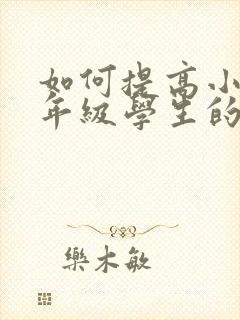 如何提高小
年級學生的
樂木敏